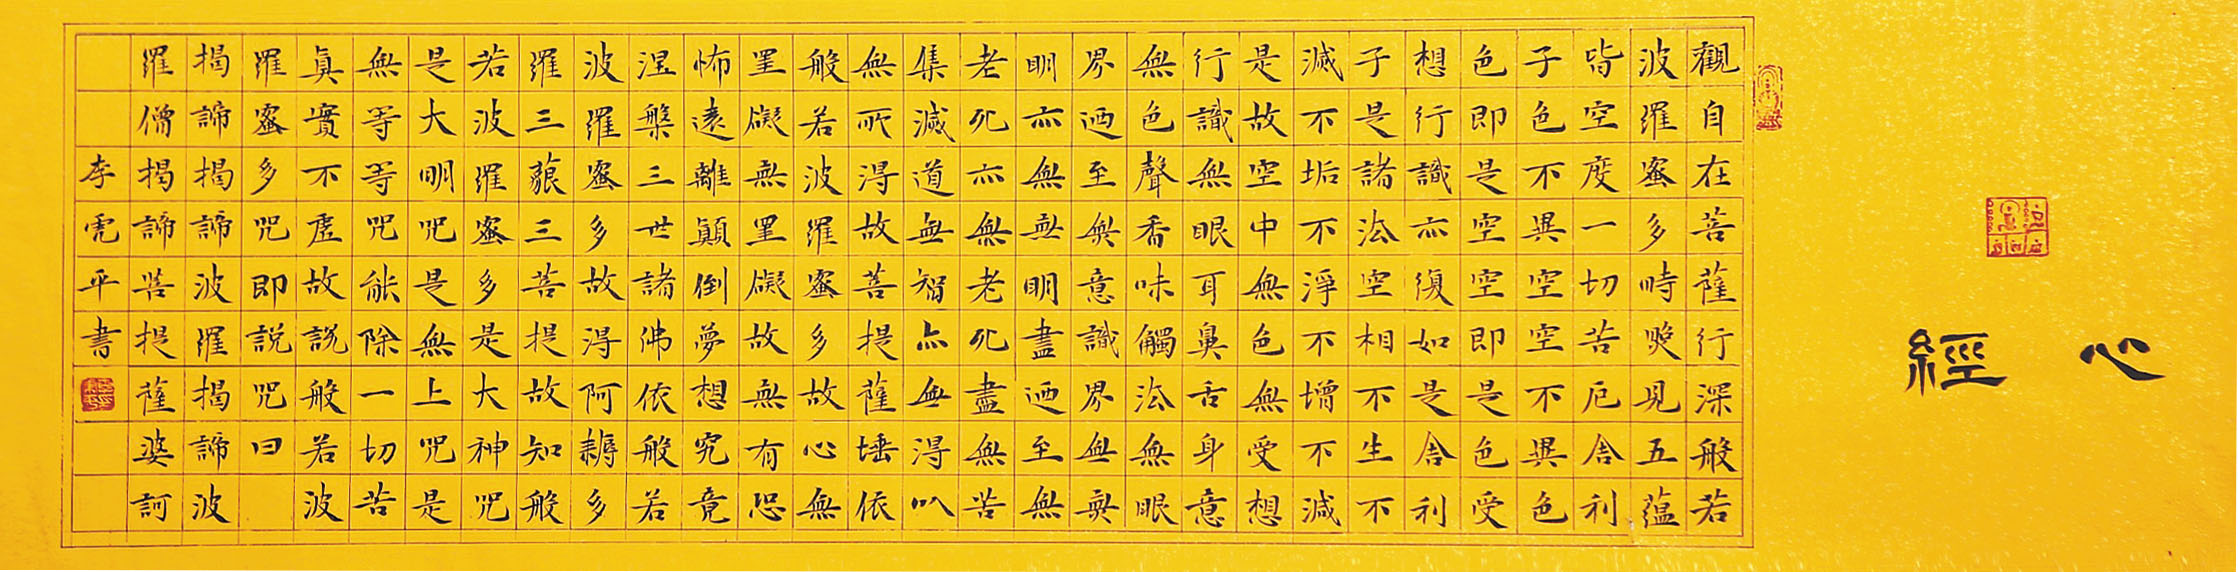 心經
觀自在菩薩行深般若
波羅蜜多時照見五蘊
皆空度一切苦厄舍利
子色不異空空不異色
色即是空空即是色受
想行識亦復如是舍利
子是諸法空相不生不
滅不垢不淨不增不減
是故空中無色無受想
行識無眼耳鼻舌身意
無色聲香味觸法無眼
界迺至無意識界無無
明亦無無明盡迺至無
老死亦無老死盡無苦
集滅道無智亦無得以
無所得故菩提薩埵依
般若波羅蜜多故心無
罣礙無罣礙故無有恐
怖遠離顛倒夢想究竟
涅槃三世諸佛依般若
波羅蜜多故得阿耨多
羅三藐三菩提故知般
若波羅蜜多是大神咒
是大明咒是無上咒是
無等等咒能除一切苦
真實不虛故說般若波
羅蜜多咒即說咒曰
揭諦揭諦波羅揭諦波
羅僧揭諦菩提薩婆訶
李虎平書